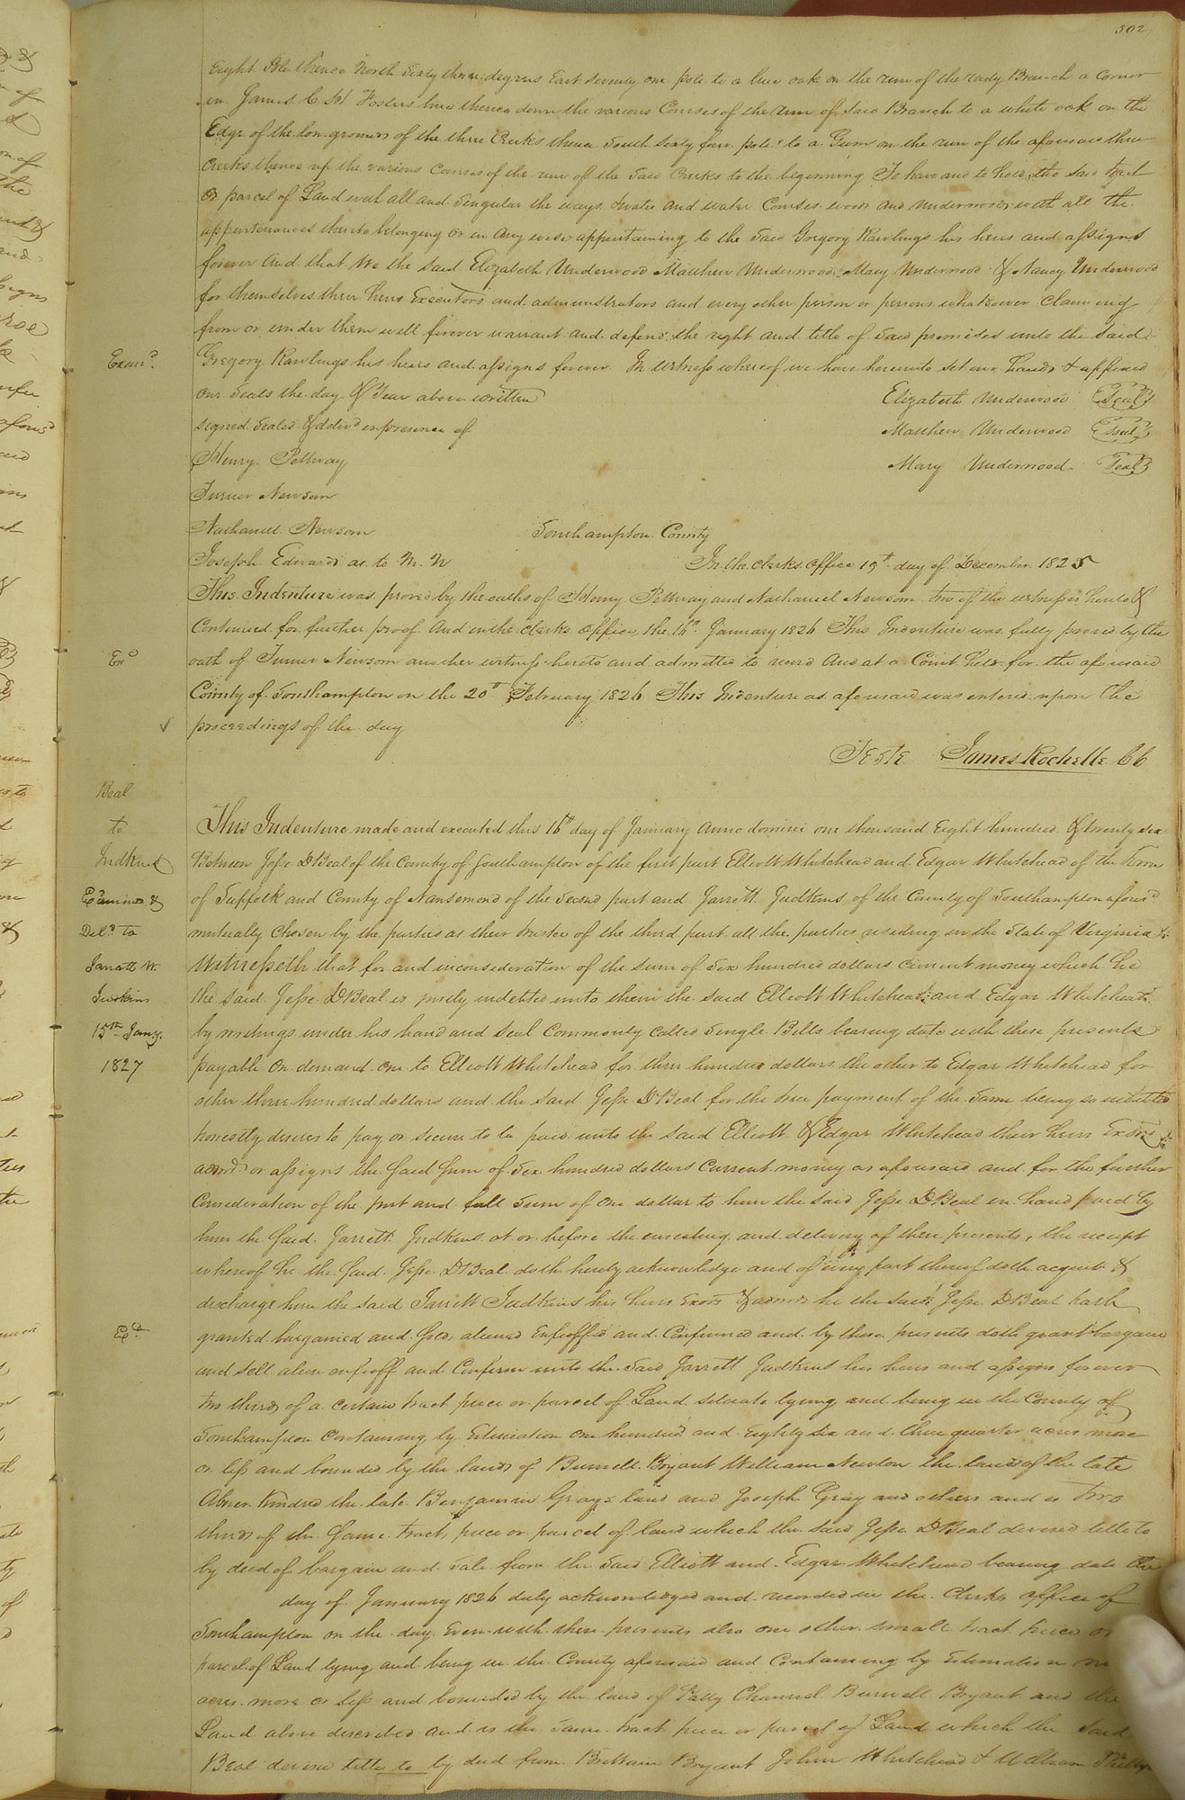 302
Eight Pole thence North Sixty three degrees East Seventy one pole to a live oak on the run of the reedy Branch a Corner
in James C M Fosters line thence down the various Courses of the run of Said Branch to a white oak on the
Edge of the low grounds of the three Creeks thence South Sixty four pole to a Gum on the run of the aforesaid three
Creeks thence up the various Courses of the run of the Said Creeks to the beginning To have and to hold the Said tract
or parcel of Land with all and Singular the ways water and water Courses woods and underwoods with all the
appurtenances thereto belonging or in any wise appertaining to the Said Gregory Rawlings his heirs and assigns
forever And that We the Said Elizabeth Underwood Matthew Underwood Mary Underwood & Nancy Underwood
for themselves their heirs Executors and administrators and every other person or persons whatsoever Claiming
from or under them will forever warrant and defend the right and title of Said premises unto the Said
Exam.d
Gregory Rawlings his heirs and assigns forever In witness whereof we have hereunto set our hands & affixed
our Seals the day & Year above written Elizabeth Underwood Seal
signed Sealed & deld in presence of Matthew Underwood Seal
Henry Pettway Mary Underwood Seal
Turner Newsom
Nathaniel Newsom Southampton County
Joseph Edwards as to M. U In the clerks office 19th day of December 1825
This Indenture was proved by the oaths of Henry Pettway and Nathaniel Newsom two of the witnesses hereto &
Continued for further proof And in the clerks office, the 16th January 1826 This Indenture was fully proved by the
Exd
oath of Turner Newsom another witness hereto and admitted to record And at a Court held for the aforesaid
County of Southampton on the 20th February 1826 This Indenture as aforesaid was entered upon the
proceedings of the day
Teste James Rochelle CC
Beal
to
Judkins
Examined &
Deld to
Jarratt W.
Judkins
15th Jany.
1827
This Indenture made and executed this 16th day of January Anno domini one thousand Eight hundred & twenty six
Between Jesse D Beal of the County of Southampton of the first part Elliott Whitehead and Edgar Whitehead of the Town
of Suffolk and County of Nansemond of the Second part and Jarrett Judkins of the County of Southampton aforesd
mutually Chosen by the parties as their trustee of the third part all the parties residing in the State of Virginia
Witnesseth that for and inconsideration of the sum of Six hundred dollars current money which he
the said Jesse D Beal is justly indebted unto them the said Elliott Whitehead and Edgar Whitehead
by writings under his hand and Seal Commonly Called Single Bills bearing date with these presents
payable on demand one to Elliott Whitehead for three hundred dollars the other to Edgar Whitehead for
other three hundred dollars and the Said Jesse D Beal for the true payment of the Same being so indebted
honestly desires to pay or secure to be paid unto the Said Elliott & Edgar Whitehead their heirs Exors
admrs or assigns the Said Sum of Six hundred dollars Current money as aforesaid and for the further
Consideration of the just and full Sum of One dollar to him the Said Jesse D Beal in hand paid by
him the Said Jarrett Judkins at or before the ensealing and delivery of these presents, the receipt
whereof he the Said Jesse D Beal doth hereby acknowledge and of every part thereof doth acquit &
discharge him the Said Jarrett Judkins his heirs Exors & admrs he the Said Jesse D Beal hath
Exd
granted bargained and Sold, aliened Enfeoffed and Confirmed and by these presents doth grant bargain
and sell alien enfeoff and Confirm unto the Said Jarrett Judkins his heirs and assigns forever
two thirds of a certain tract piece or parcel of Land situate lying and being in the County of
Southampton Containing by Estimation one hundred and Eighty Six and three quarter acres more
or less and bounded by the lands of Burwell Bryant William Newton the lands of the late
Abner Kindred the late Benjamin Grays land and Joseph Gray and others and is two
thirds of the Same tract, piece or parcel of land which the Said Jesse D Beal derived title to
by deed of bargain and Sale from the Said Elliott and Edgar Whitehead bearing date the
day of January 1826 duly acknowledged and recorded in the Clerks office of
Southampton on the day Even with these presents also one other small tract piece or
parcel of Land lying and being in the County aforesaid and Containing by Estimation
acres more or less and bounded by the land of Burwell Bryant and the
Land above described and is the Same tract piece or parcel of Land which the Said
Beal derived title to by deed from Brittain Bryant John Whitehead & William